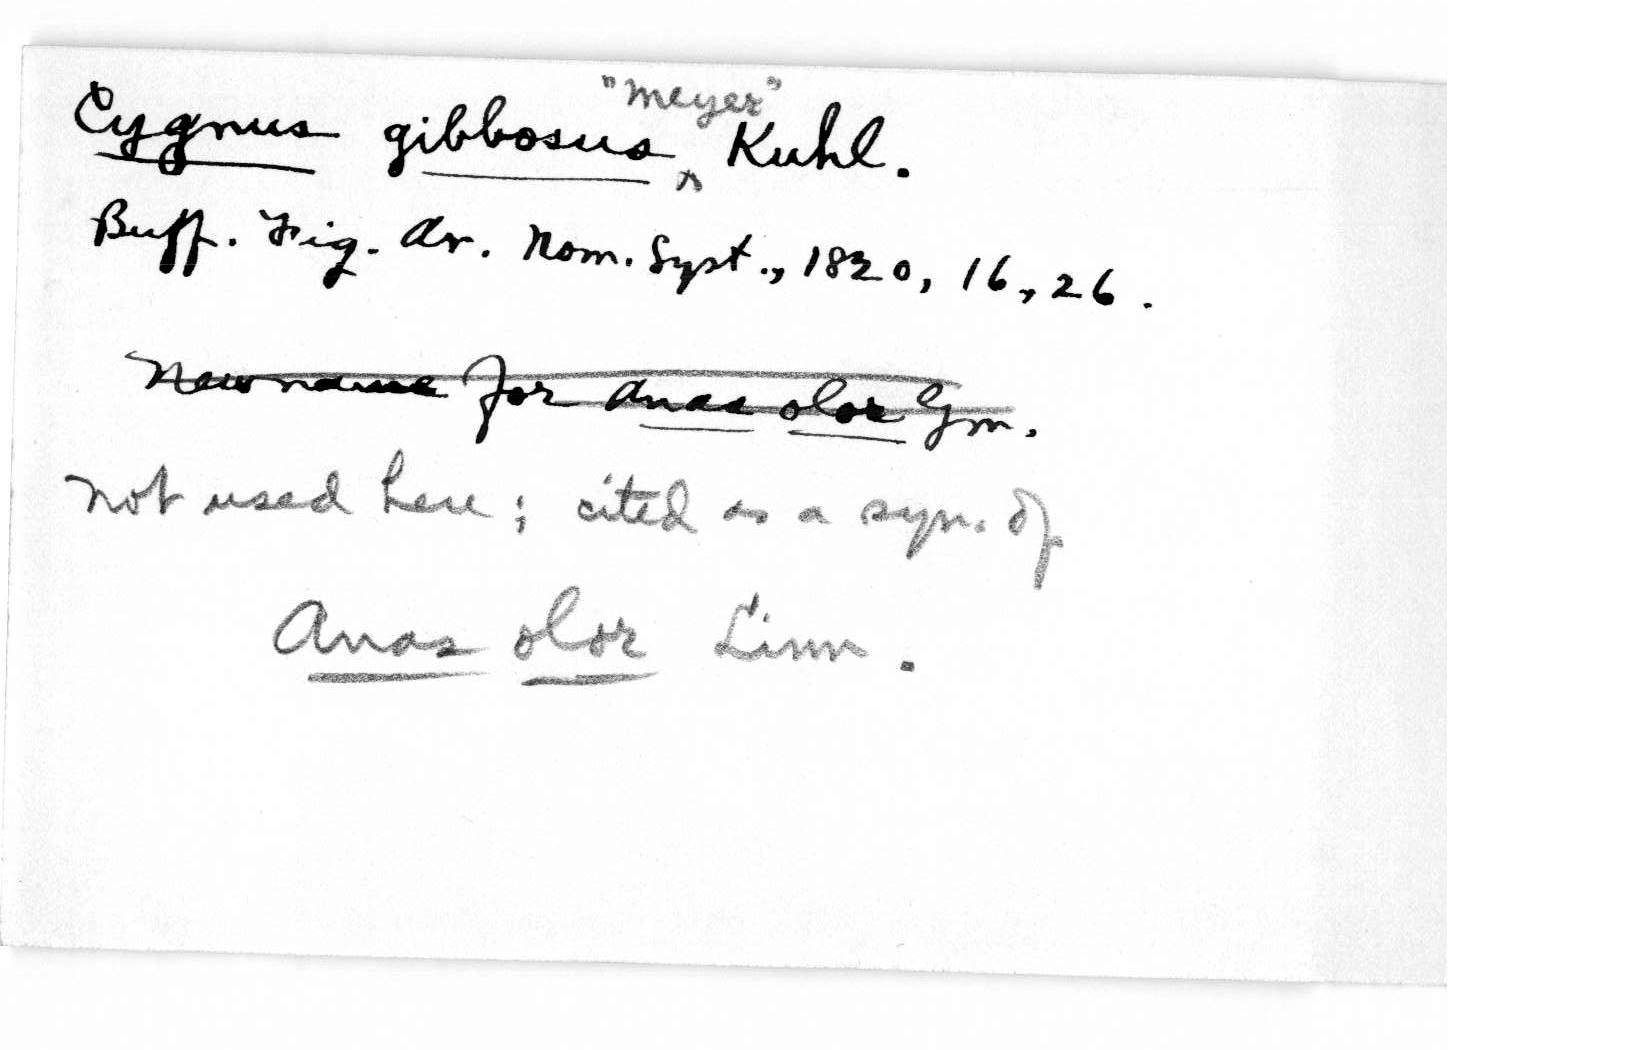 Cygnus gibbosus "Meyer" Kuhl.
Buff. Fig. Av. Nom. Syst., 1820, 16, 26.
New name for Anas olor Gm.
not used here; cited as a syn. of
Anas olor Linn.